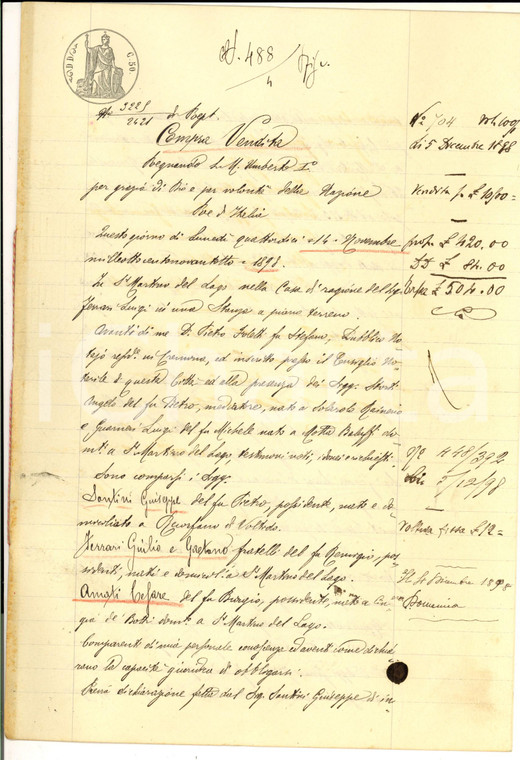 488
4
C. 50
N. 3225 di Rogt.
2421
Compra Vendita
Regnando S. M. Umberto I°
per grazia di Dio e per volontà della Nazione
Re d'Italia
Questo giorno di Lunedì quattordici - 14 - Novembre
milleottocentonovantotto - 1898
In S. Martino del Lago nella Casa di ragione del Sig.
Ferrari Luigi in una Stanza a piano terreno.
Avanti di me Dr. Pietro fu Stefano, Pubblico No-
tajo resid. in Cremona, ed inscritto presso il Consiglio No-
tarile di questa Città ed alla presenza dei Sigg.
Angelo del fu Pietro, mediatore, nato a Solarolo Rainerio
e Guarneri Luigi del fu Michele nato a Motta Baluffi do-
mti a S. Martino del Lago, testimoni noti, idonei e richiesti.
Sono comparsi i Sigg.
Santini Giuseppe del fu Pietro, possidente, nato e do-
miciliato a Recorfano di Voltido.
Ferrari Giulio e Gaetano fratelli del fu Remigio, pos-
sidenti, nati e domicil. a S. Martino del Lago.
Amati Cesare del fu Biagio, possidente, nato a Cin-
gia de' Botti domto a S. Martino del Lago.
Comparenti di mia personale conoscenza ed aventi come dichia-
rano la capacità giuridica di obbligarsi.
Previa dichiarazione fatta dal Sig. Santini Giuseppe d'in-
N° 704
di 5 Dicembre 1898
Vendita p. £ 10,00 =
£ 420.00
DD £ 84.00
£ 504.00
N° 448/392
5/12/98
Voltura fissa £ 12 =
1898